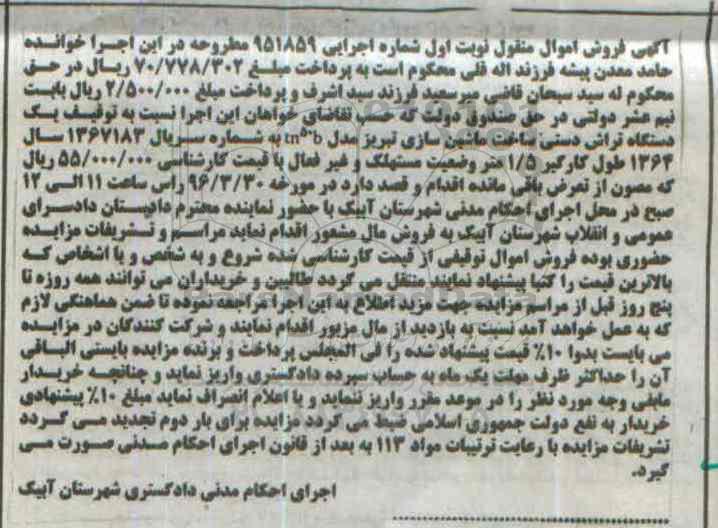 آگهی فروش اموال منقول نوبت اول شماره اجرایی ۹۵۱۸۵۹ مطروحه در این اجرا خوانده
حامد معدن پیشه فرزند اله قلی محکوم است به پرداخت مبلغ ۷۰/۷۷۸/۳۰۲ ریال در حق
محکوم له سید سبحان قاضی میرسعید فرزند سید اشرف و پرداخت مبلغ ۲/۵۰۰/۰۰۰ ریال بابت
نیم عشر دولتی در حق صندوق دولت که حسب تقاضای خواهان این اجرا نسبت به توقیف یک
دستگاه تراش دستی ساخت ماشین سازی تبریز مدل tn۵۰b به شماره سریال ۱۳۶۷۱۸۳ سال
۱۳۶۴ طول کارگیر ۱/۵ متر وضعیت مستهلک و غیر فعال با قیمت کارشناسی ۵۵/۰۰۰/۰۰۰ ریال
که مصون از تعرض باقی مانده اقدام و قصد دارد در مورخه ۹۶/۳/۳۰ راس ساعت ۱۱ الی ۱۲
صبح در محل اجرای احکام مدنی شهرستان آبیک با حضور نماینده محترم دادستان دادسرای
عمومی و انقلاب شهرستان آبیک به فروش مال مشعور اقدام نماید مراسم و تشریفات مزایده
حضوری بوده فروش اموال توقیفی از قیمت کارشناسی شده شروع و به شخص و یا اشخاص که
بالاترین قیمت را کتبا پیشنهاد نمایند منتقل می گردد طالبین و خریداران می توانند همه روزه تا
پنج روز قبل از مراسم مزایده جهت مزید اطلاع به این اجرا مراجعه نموده تا ضمن هماهنگی لازم
که به عمل خواهد آمد نسبت به بازدید از مال مزبور اقدام نمایند و شرکت کنندگان در مزایده
می بایست بدوا ۱۰٪ قیمت پیشنهاد شده را فی المجلس پرداخت و برنده مزایده بایستی الباقی
آن را حداکثر ظرف مهلت یک ماه به حساب سپرده دادگستری واریز نماید و چنانچه خریدار
مابقی وجه مورد نظر را در موعد مقرر واریز ننماید و یا اعلام انصراف نماید مبلغ ۱۰٪ پیشنهادی
خریدار به نفع دولت جمهوری اسلامی ضبط می گردد مزایده برای بار دوم تجدید می گردد
تشریفات مزایده با رعایت ترتیبات مواد ۱۱۳ به بعد از قانون اجرای احکام مدنی صورت می
گیرد.
اجرای احکام مدنی دادگستری شهرستان آبیک